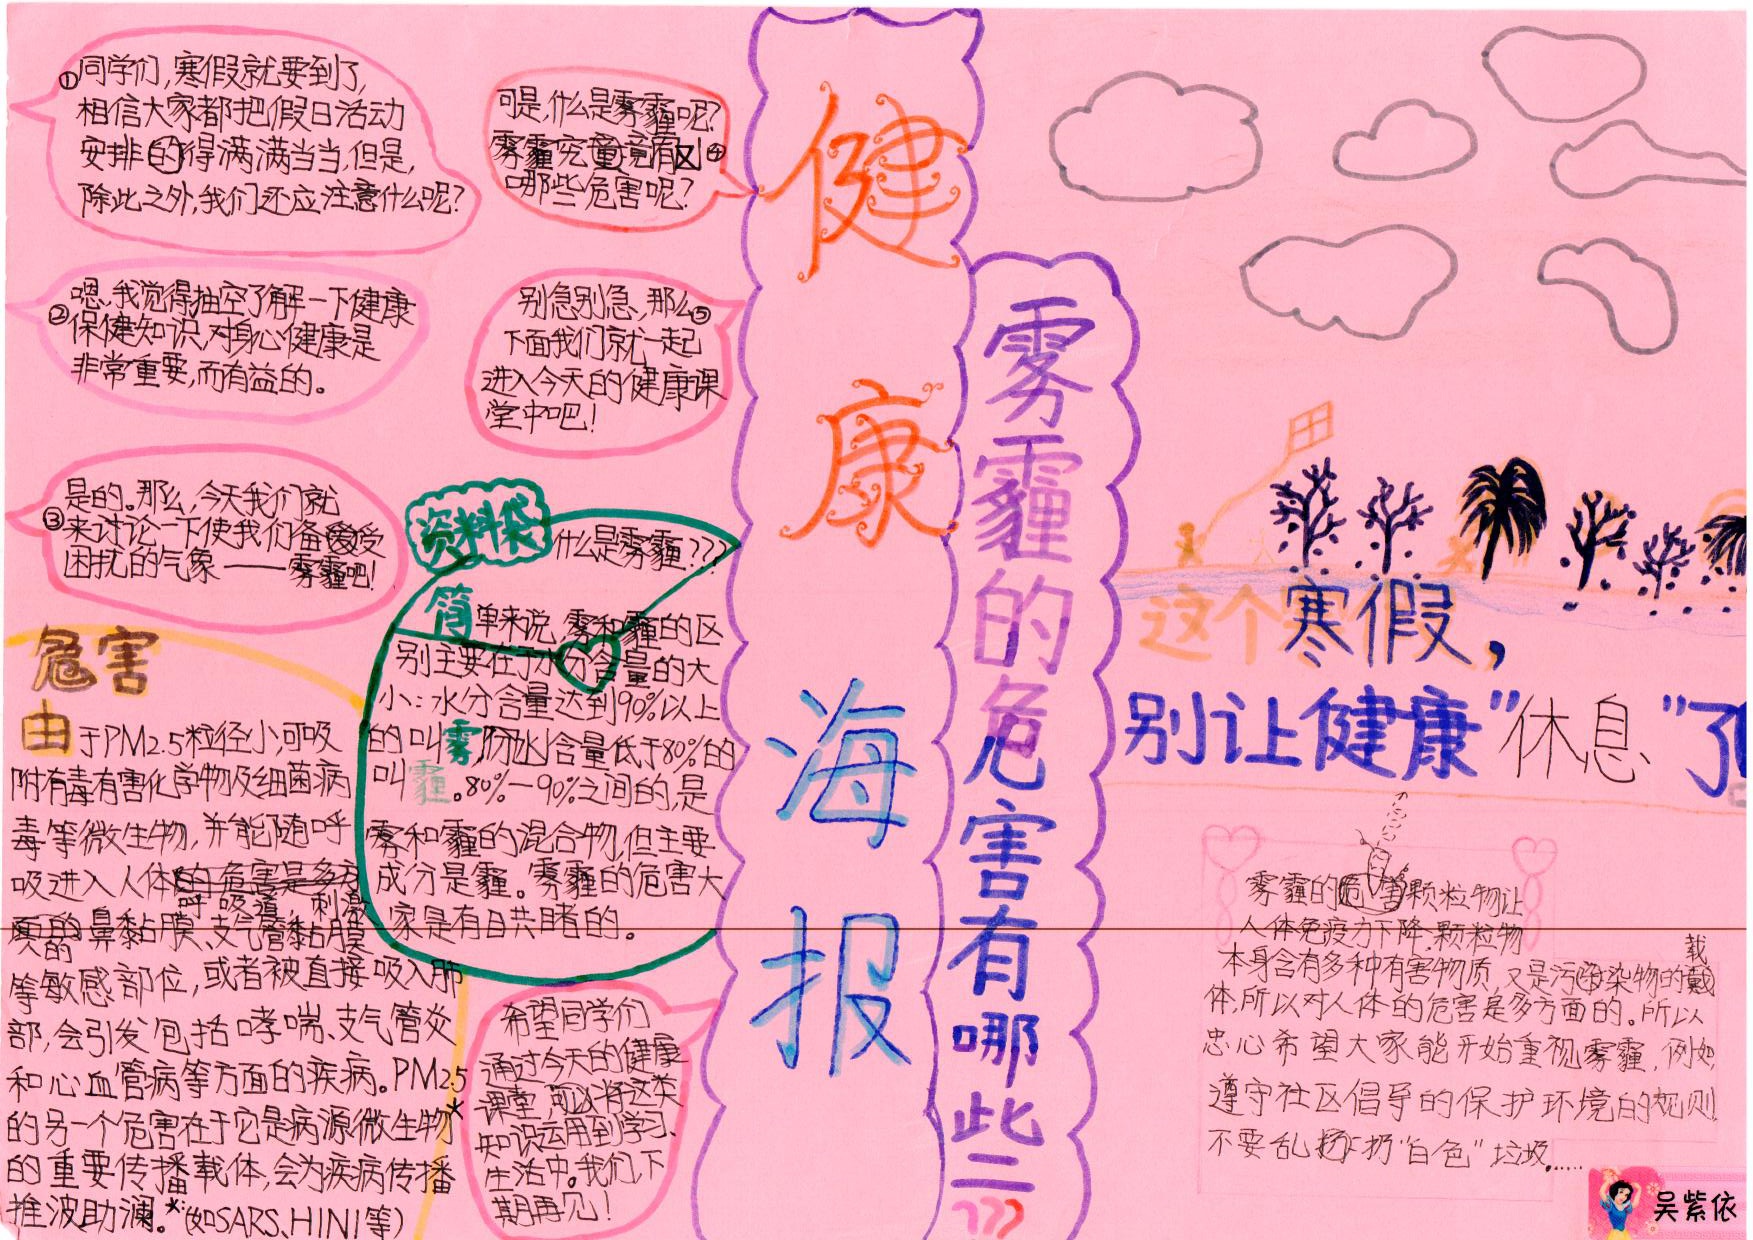 ①同学们,寒假就要到了,
相信大家都把假日活动
安排的得满满当当,但是,
除此之外,我们还应注意什么呢?
②嗯、我觉得抽空了解一下健康
保健知识,对身心健康是
非常重要,而有益的。
③是的。那么,今天我们就
来讨论一下使我们备受
困扰的气象——雾霾吧!
可是,什么是雾霾呢?
雾霾究竟有④
哪些危害呢?
别急别急,那么⑤
下面我们就一起
进入今天的健康课
堂中吧!
资料袋
什么是雾霾???
简单来说,雾和霾的区
别主要在于水分含量的大
小:水分含量达到90%以上
的叫雾,而水分含量低于80%的
叫霾。80%—90%之间的,是
雾和霾的混合物,但主要
成分是霾。雾霾的危害大
家是有目共睹的。
危害
由于PM2.5粒径小,可吸
附有毒有害化学物及细菌病
毒等微生物,并能随呼
吸进入人体的危害是多方
面的
呼吸道,刺激
的鼻黏膜、支气管黏膜
等敏感部位,或者被直接吸入肺
部,会引发包括哮喘、支气管炎
和心血管病等方面的疾病。PM2.5
的另一个危害在于它是病源微生物*
的重要传播载体,会为疾病传播
推波助澜。*:(如SARS、H1N1等)
希望同学们
通过今天的健康
课堂,可以将这类
知识运用到学习、
生活中。我们下
期再见!
健康海报
雾霾的危害有哪些二
???
这个寒假,
别让健康"休息"了
雾霾的害颗粒物让
人体免疫力下降,颗粒物
本身含有多种有害物质,又是污染物的载
体,所以对人体的危害是多方面的。所以
忠心希望大家能开始重视雾霾,例如,
遵守社区倡导的保护环境的规则
不要乱扔"白色"垃圾......
吴紫依